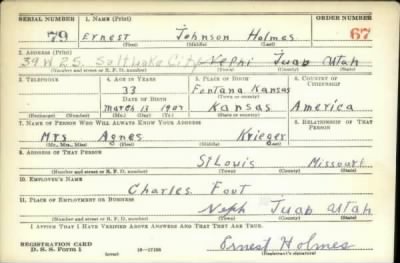 SERIAL NUMBER 1. NAME (Print) ORDER NUMBER
79 Ernest Johnson Holmes 67
(First) (Middle) (Last)
2. ADDRESS (Print)
39 W 2 S. Salt Lake City Nephi Juab Utah
(Number and street or R. F. D. number) (Town) (County) (State)
3. TELEPHONE 4. AGE IN YEARS 5. PLACE OF BIRTH 6. COUNTRY OF CITIZENSHIP
33 Fontana Kansas
DATE OF BIRTH (Town or county)
March 13 1907 Kansas America
(Exchange) (Number) (Mo.) (Day) (Yr.) (State or country)
7. NAME OF PERSON WHO WILL ALWAYS KNOW YOUR ADDRESS 8. RELATIONSHIP OF THAT PERSON
Mrs Agnes Krieger
(Mr., Mrs., Miss) (First) (Middle) (Last)
9. ADDRESS OF THAT PERSON
St Louis Missouri
(Number and street or R. F. D. number) (Town) (County) (State)
10. EMPLOYER'S NAME
Charles Foot
11. PLACE OF EMPLOYMENT OR BUSINESS
Neph Juab Utah
(Number and street or R. F. D. number) (Town) (County) (State)
I AFFIRM THAT I HAVE VERIFIED ABOVE ANSWERS AND THAT THEY ARE TRUE.
REGISTRATION CARD
D. S. S. Form 1 (over) Ernest Holmes
(Registrant's signature)